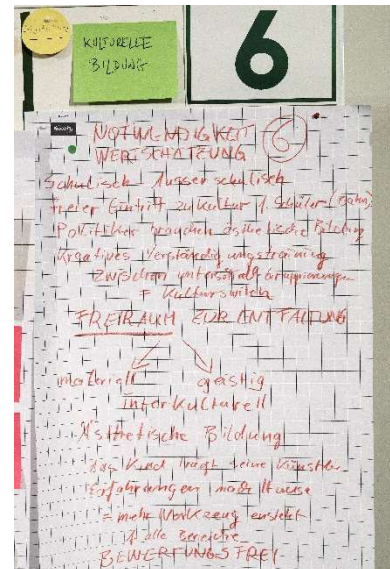 KULTURELLE
BILDUNG
6
NOTWENDIGKEIT
6
WERTSCHÄTZUNG
Schulisch Ausserschulisch
freier Eintritt zu Kultur / Schüler (Bahn)
Politiker brauchen ästhetische Bildung
Kreatives Verständigungstraining
zwischen
= Kulturswitch
FREIRAUM ZUR ENTFALTUNG
materiell geistig
interkulturell
Ästhetische Bildung
das Kind trägt seine Künstler.
Erfahrungen nach Hause
= mehr Werkzeug entsteht
alle Bereiche
BEWERTUNGSFREI